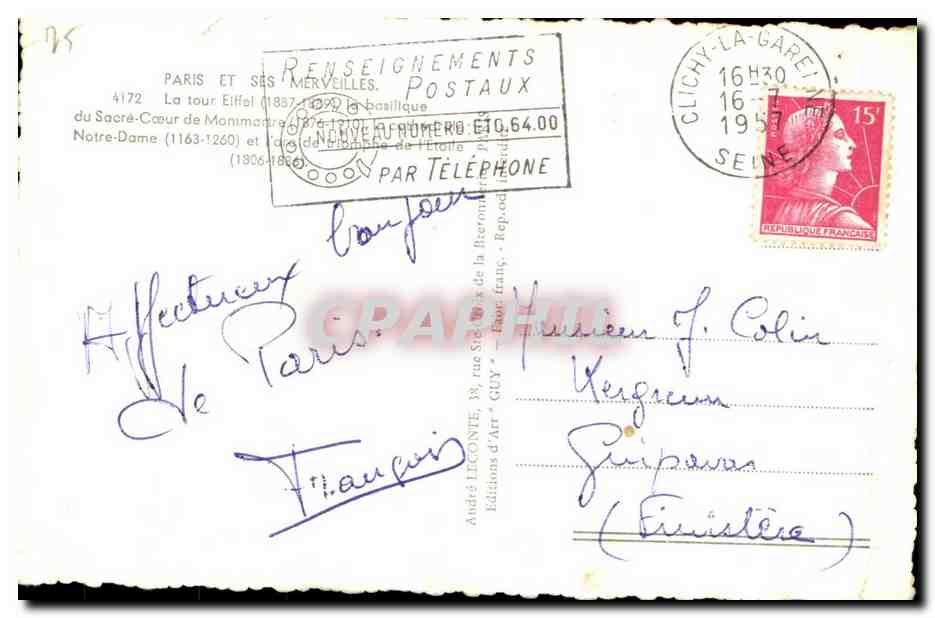 25
PARIS ET SES MERVEILLES.
4172 La tour Eiffel (1887-1889) la basilique
du Sacré-Cœur de Montmartre (1876-1910)
Notre-Dame (1163-1260) et l'arc de triomphe de l'Etoile
(1806-1836)
RENSEIGNEMENTS
POSTAUX
NOUVEAU NUMÉRO ETO.64.00
PAR TÉLÉPHONE
CLICHY-LA-GARENNE
16H30
16-7
1957
SEINE
POSTES
15F
REPUBLIQUE FRANÇAISE
Affectueux bonjour
de Paris.
François
André LECONTE, 38, rue Ste-Croix de la Bretonnerie, PARIS
Editions d'Art "GUY" - Fabr. franç. - Reprod. interdite
CPAPHIL
Monsieur J. Colin
Guipavas
(Finistère)